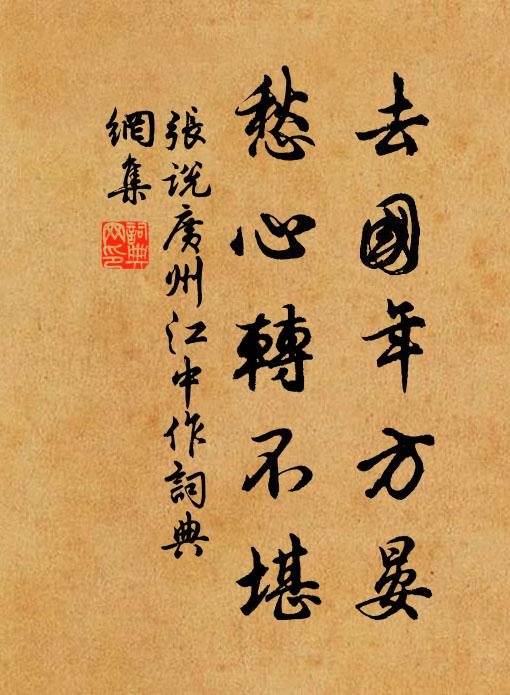 去國年方晏
愁心轉不堪
張說廣州江中作詞典
網集
詞典
网印